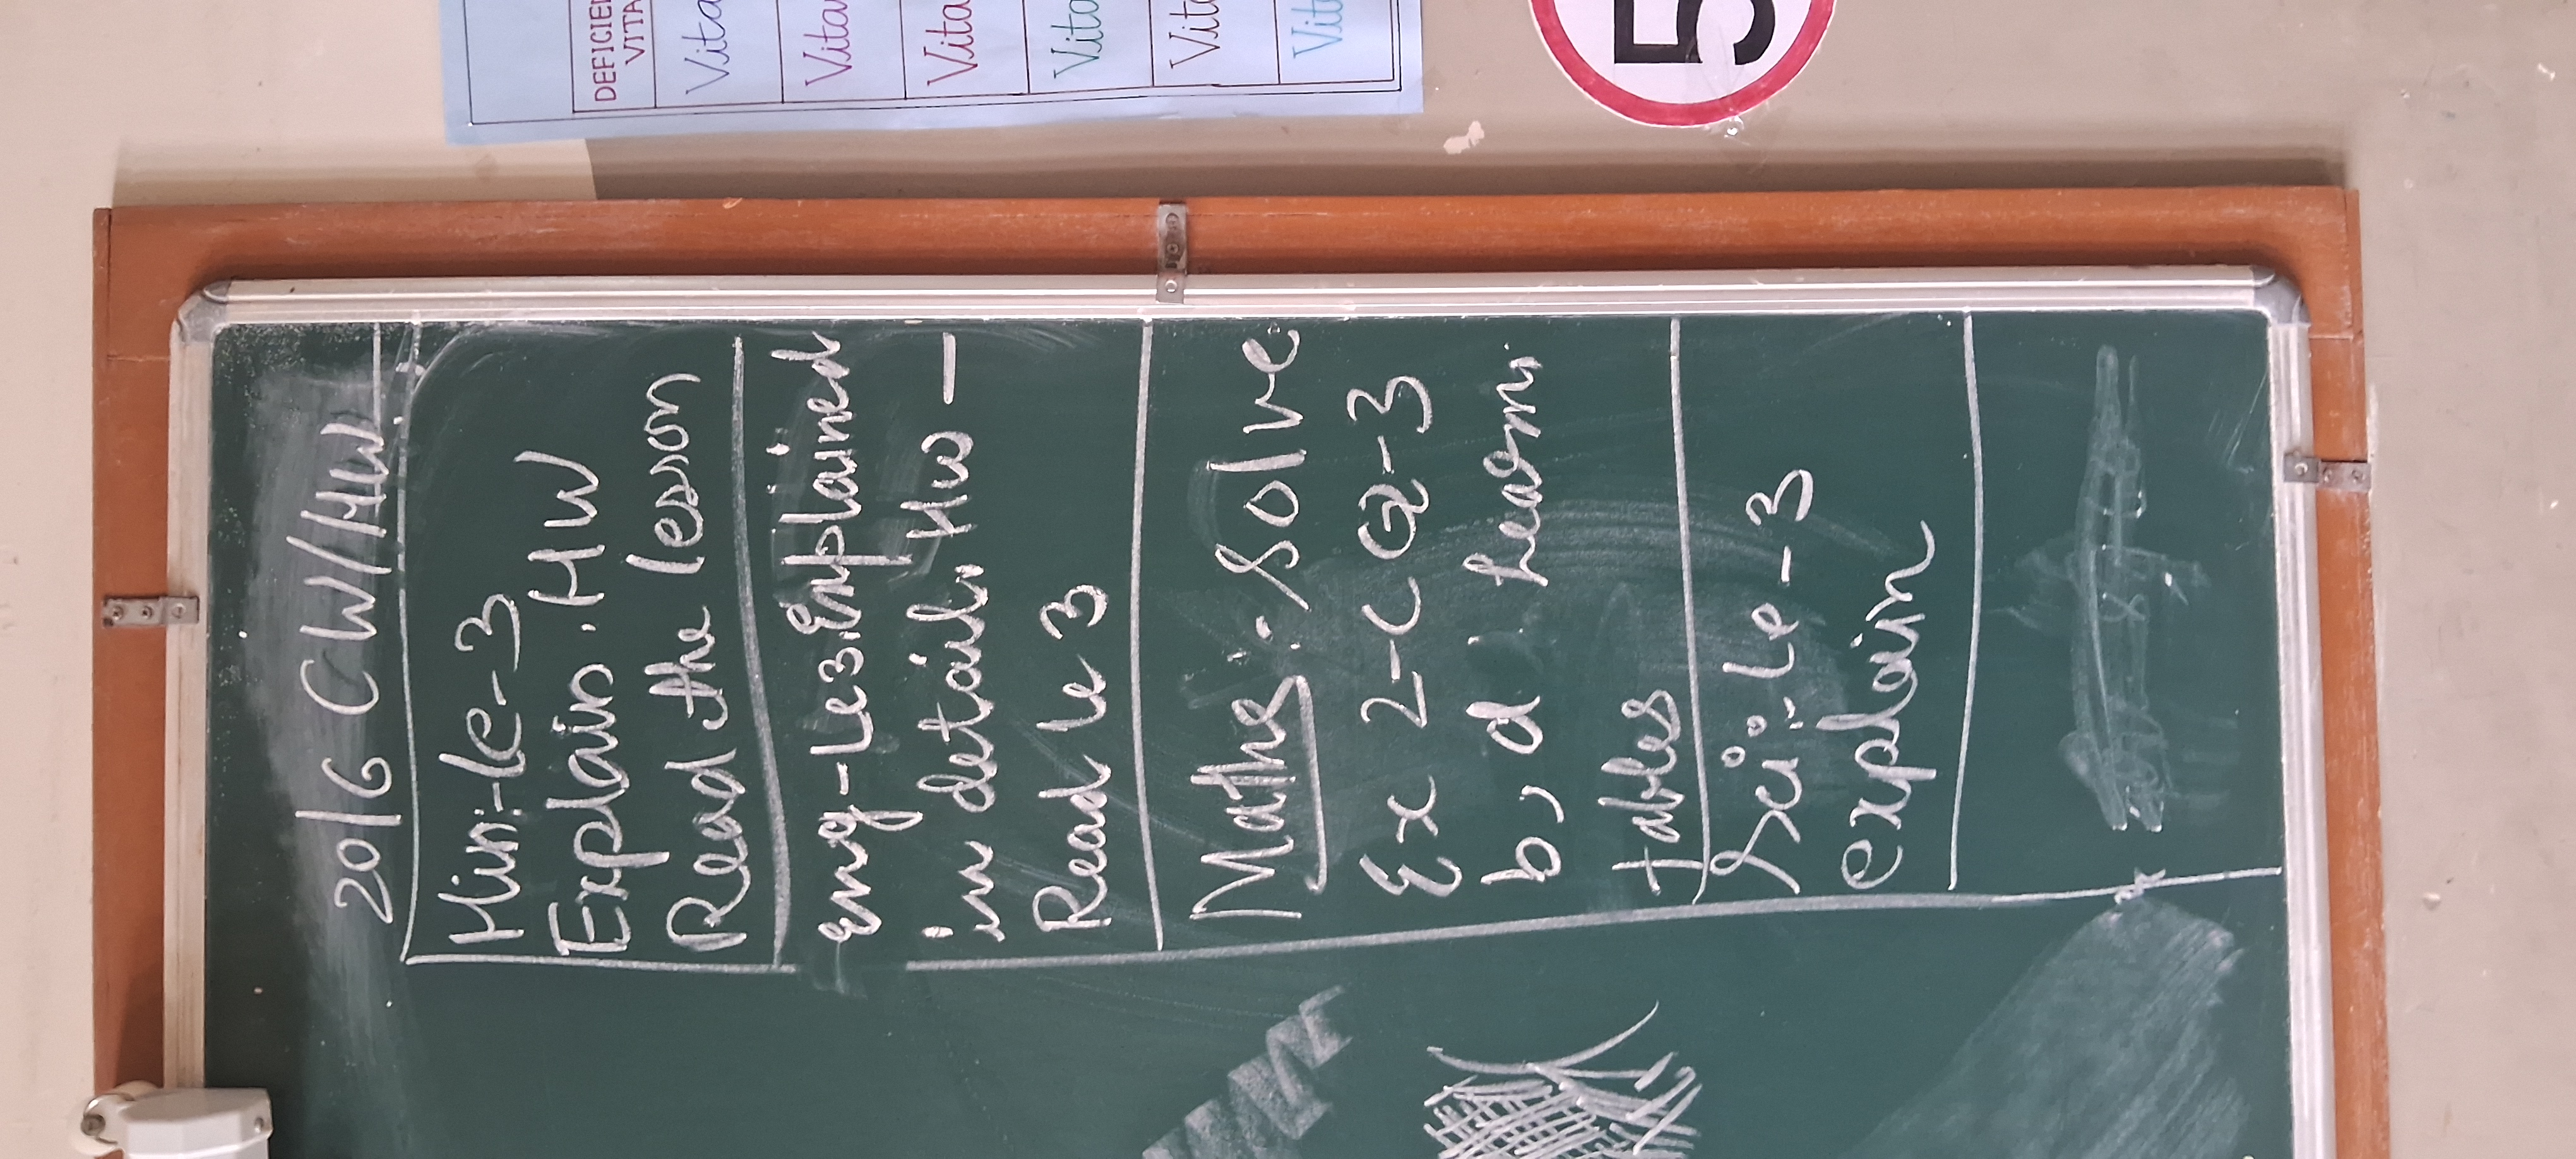 20/6 CW/HW
Hin:-Le-3
Explain. HW
Read the lesson
Eng-Le3.Explained
in detail. HW —
Read Le 3
Maths:- Solve
Ex 2-C Q-3
b, d. Learn
tables
Sci:-Le-3
explain
Vita
Vita
Vita
Vita
Vita
Vit
5